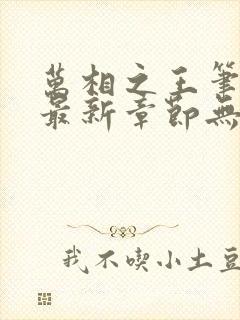 萬相之王筆
最新章節無
我不喫小土豆